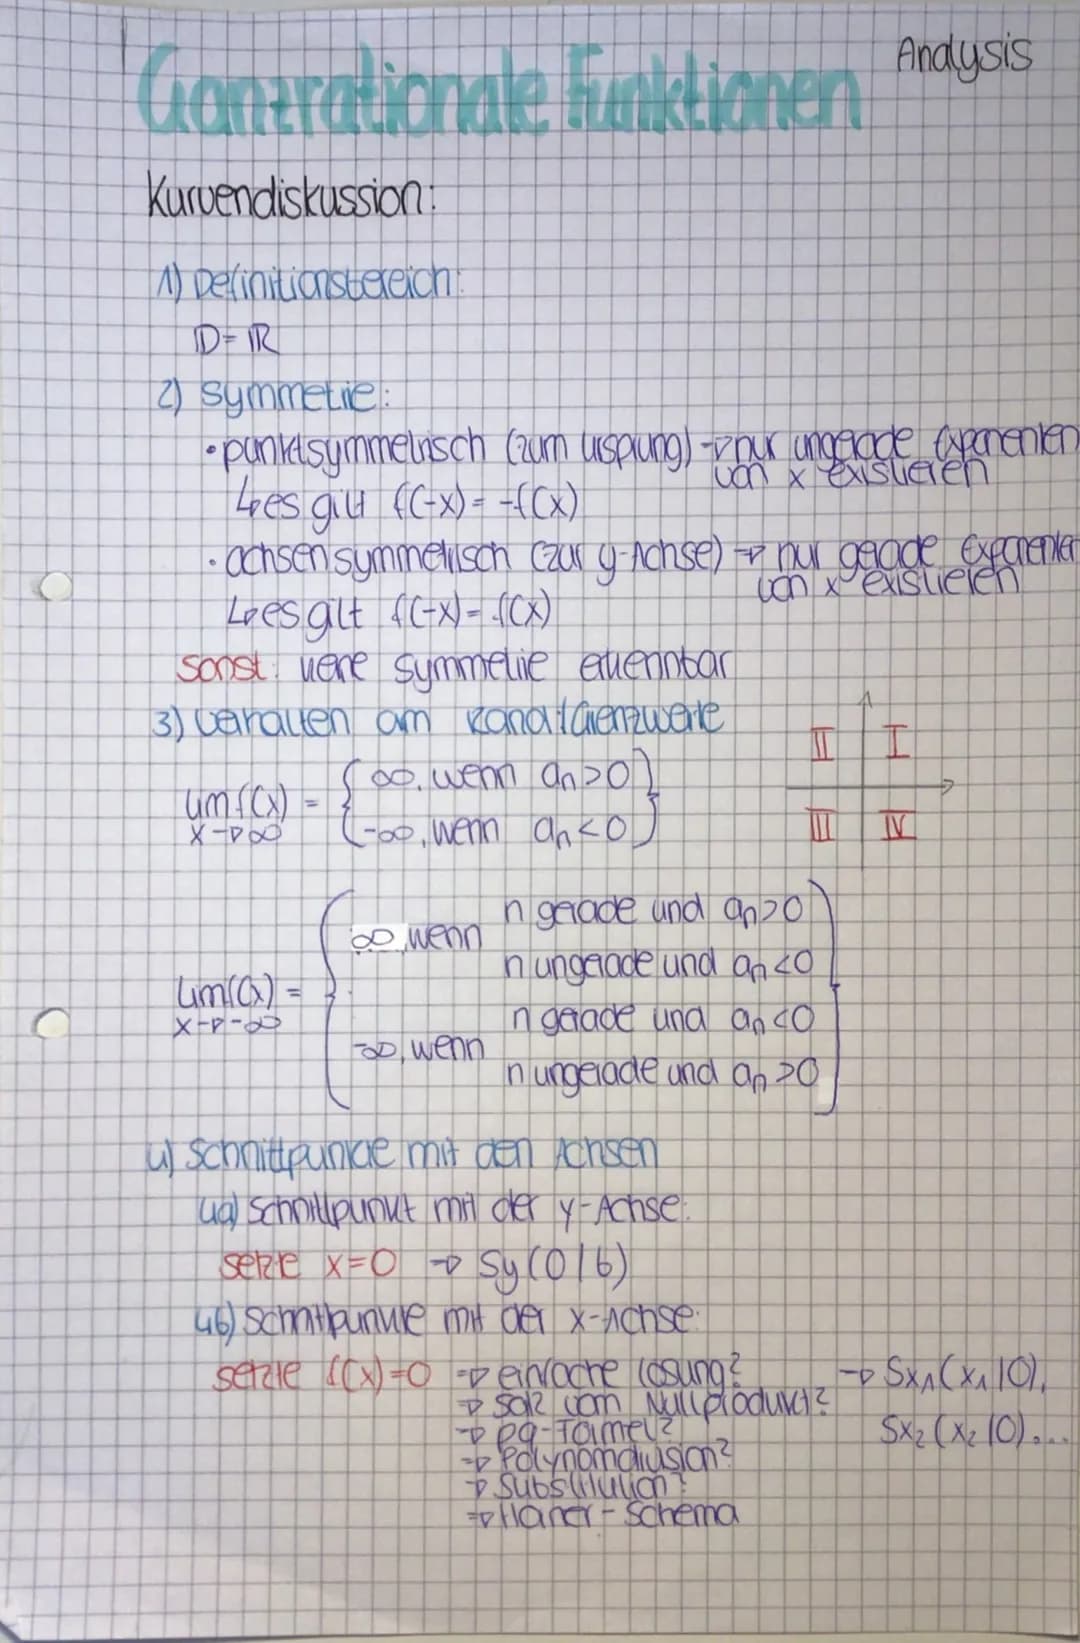 Analysis
Ganzrationale Funktionen
Kurvendiskussion:
1) Definitionsbereich:
D = ℝ
2) Symmetrie:
• punktsymmetrisch (zum Ursprung) → nur ungerade Exponenten
von x existieren
↳ es gilt f(-x) = -f(x)
• achsensymmetrisch (zur y-Achse) → nur gerade Exponenten
von x existieren
↳ es gilt f(-x) = f(x)
sonst: keine Symmetrie erkennbar
3) Verhalten am Rand/Grenzwerte
II I
lim f(x) = { ∞, wenn aₙ>0 }
x→∞ { -∞, wenn aₙ<0 }
III IV
n gerade und aₙ>0
∞, wenn
n ungerade und aₙ<0
lim f(x) =
x→-∞
n gerade und aₙ<0
-∞, wenn
n ungerade und aₙ>0
4) Schnittpunkte mit den Achsen
4a) Schnittpunkt mit der y-Achse:
setze x=0 → Sy(0/b)
4b) Schnittpunkte mit der x-Achse:
setzte f(x)=0 → einfache Lösung? → Sx₁(x₁|0),
→ Satz vom Nullprodukt?
→ pq-Formel? Sx₂(x₂|0)...
→ Polynomdivision?
→ Substitution?
→ Horner-Schema